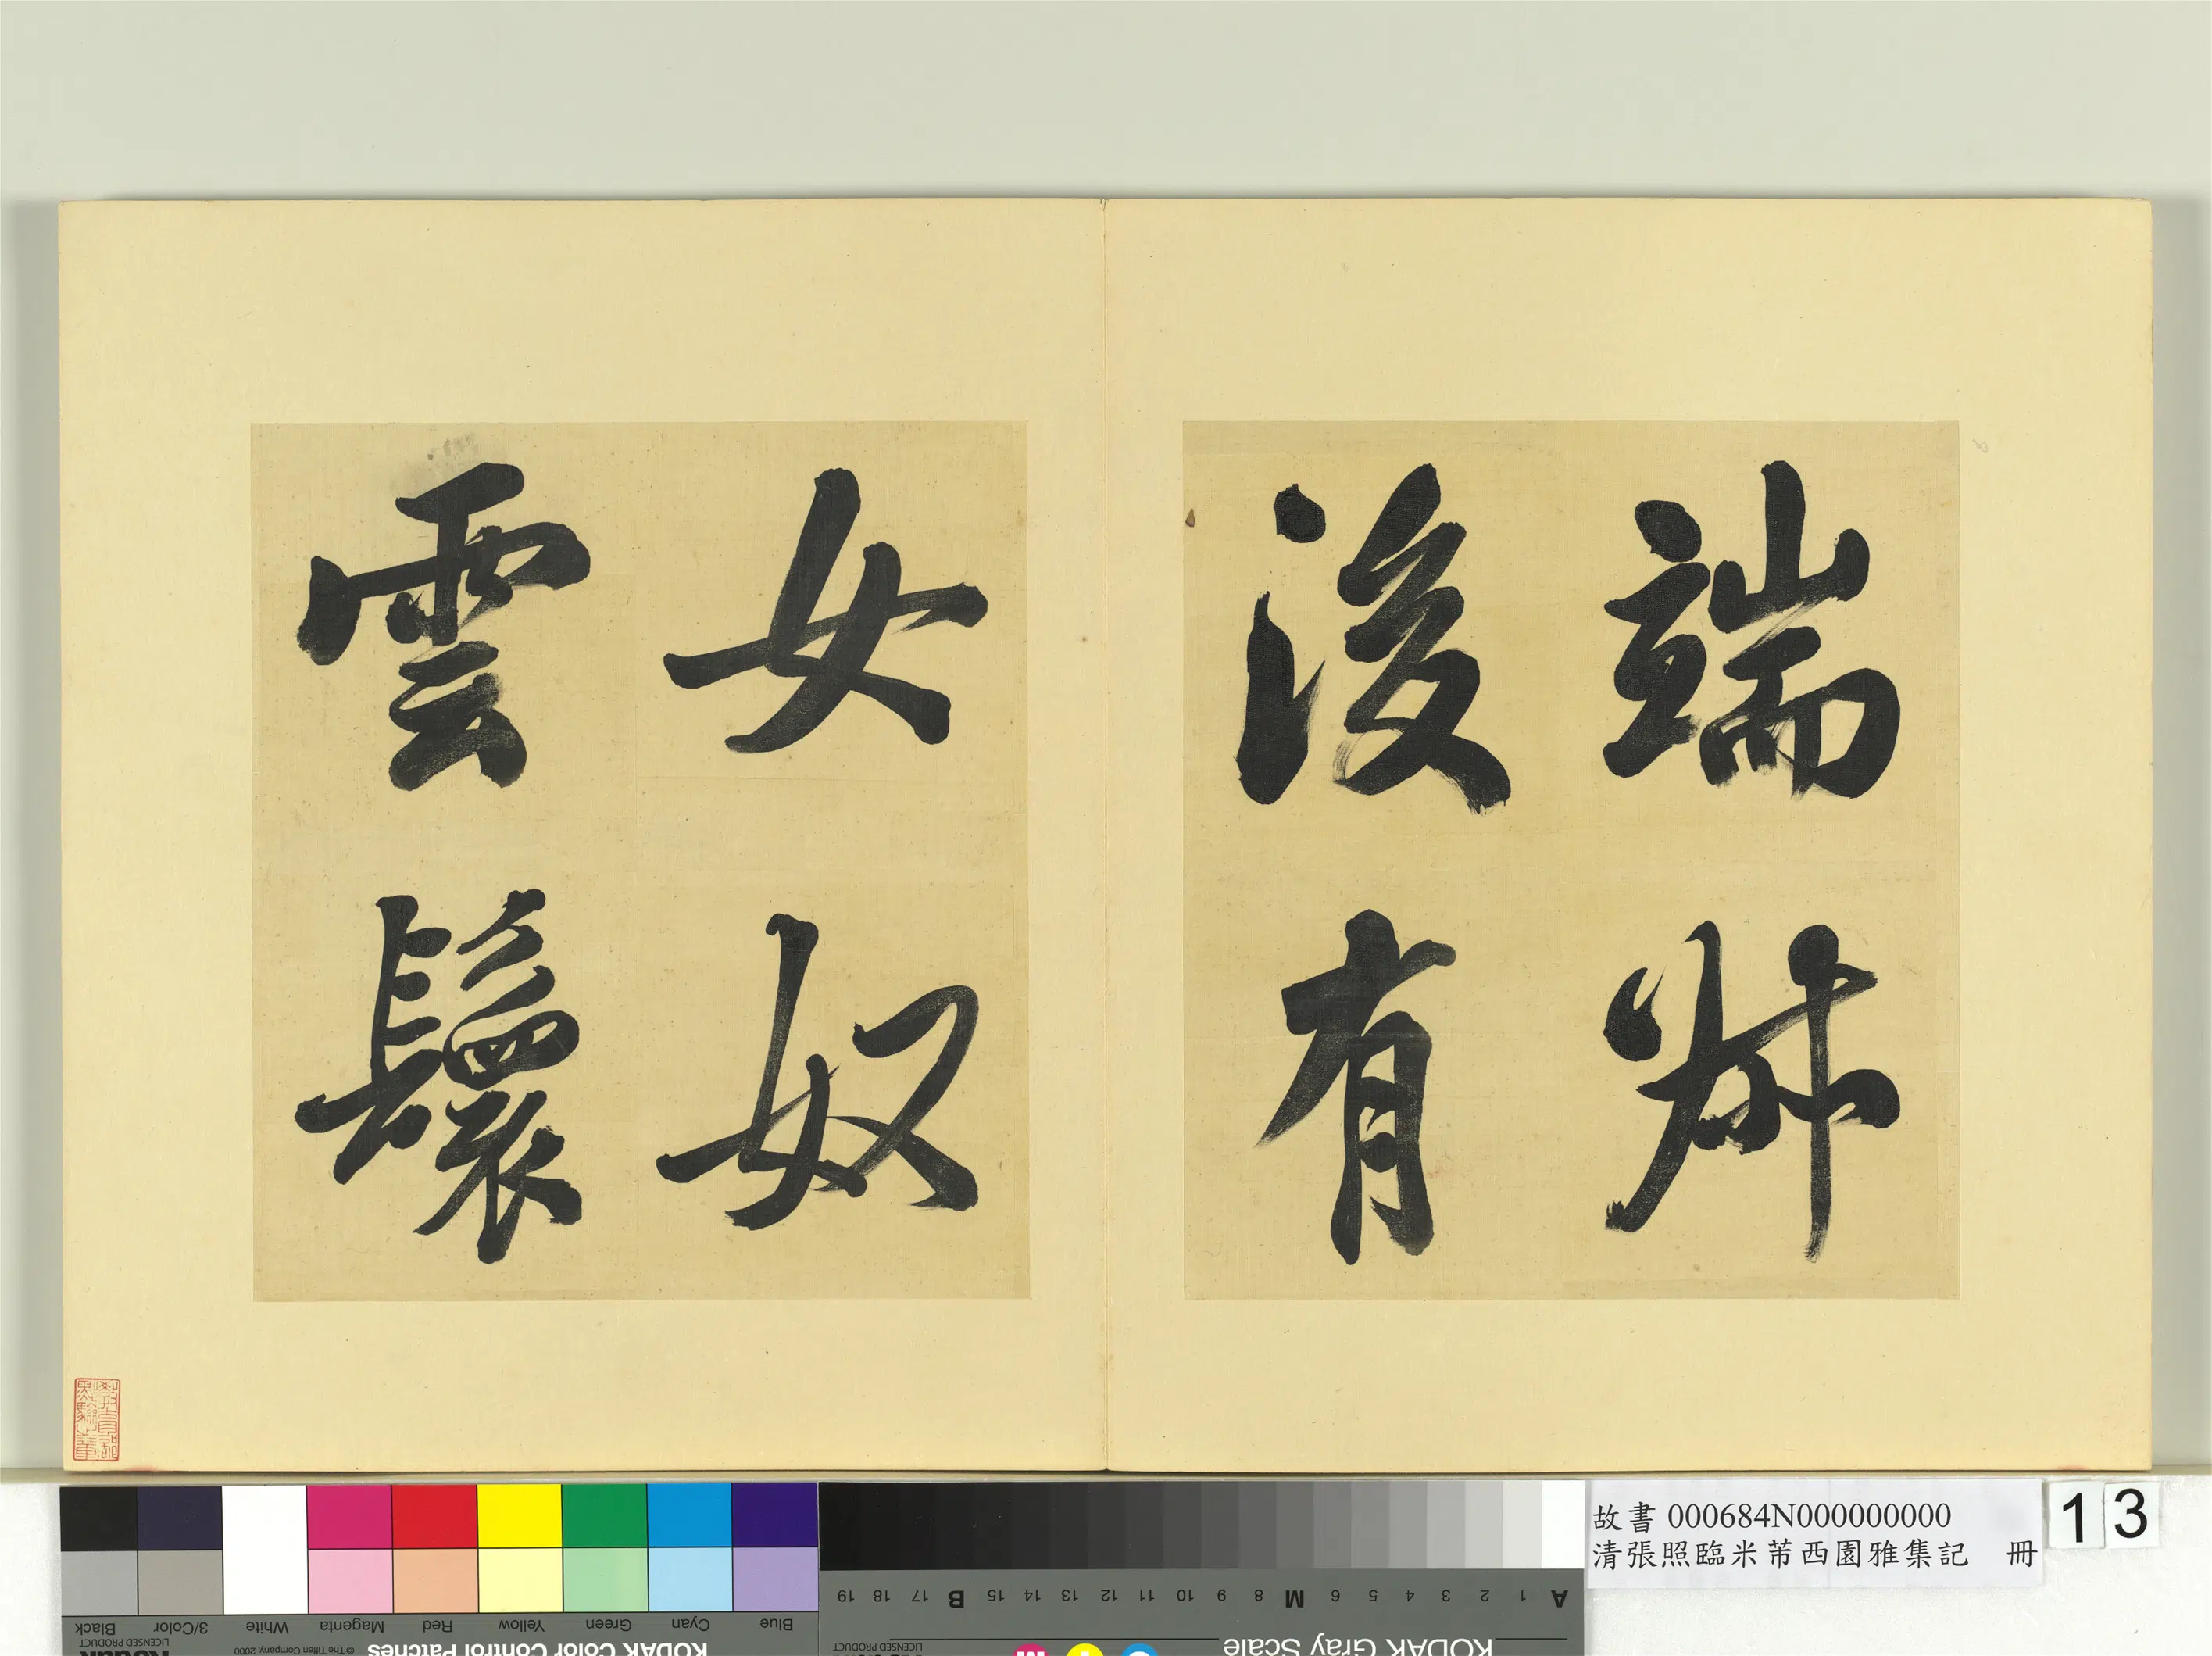 端叔
後有
女奴
雲鬟
教育部
點驗之章
故書 000684N000000000
清張照臨米芾西園雅集記 冊
13
Blue Cyan Green Yellow Red Magenta White 3/Color Black
KODAK Color Control Patches
© The Tiffen Company, 2000
Kodak
LICENSED PRODUCT
A 1 2 3 4 5 6 M 8 9 10 11 12 13 14 15 B 17 18 19
KODAK Gray Scale
LICENSED PRODUCT